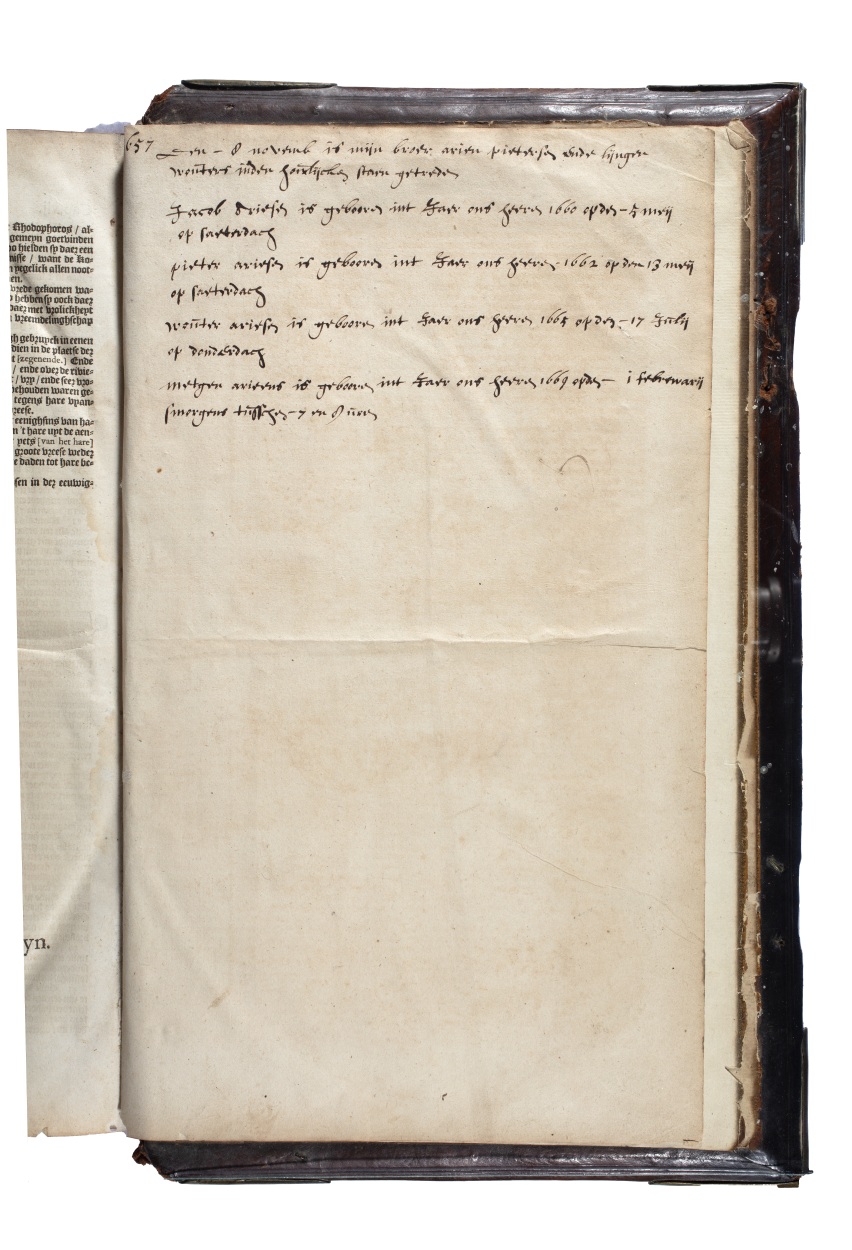 Rhodophoros / al-
gemeyn goetvinden
so hielden sy daer een
nisse / want de Ko-
n yegelick allen noot-
en.
vrede gekomen wa-
hebben sy oock daer
daer met vrolickheyt
vreemdelinghschap
gh gebruyck in eenen
dien in de plaetse der
t [zegenende.] Ende
/ ende over de rivie-
/ vry / ende seer vro-
behouden waren ge-
tegens hare vyan-
reese.
eenighsins van ha-
n 't hare uyt de aen-
yets [van het hare]
groote vreese weder
e daden tot hare be-
sen in der eeuwig-
yn.
657 Den - 8 novemb is mijn broer arien pietersen ende lijngen
wouters inden houlijcken staen getreden
Jacob Ariesen is gebooren int Jaer ons heeren 1660 op den - 5 meij
op saeterdach
pieter ariesen is gebooren int Jaer ons heeren 1662 op den 13 meij
op saeterdach
wouter ariesen is gebooren int Jaer ons heeren 1665 op den - 17 Julij
op donderdach
metgen arieens is gebooren int Jaer ons heeren 1669 op den - 1 febrewarij
smorgens tusschen - 7 en 8 uren